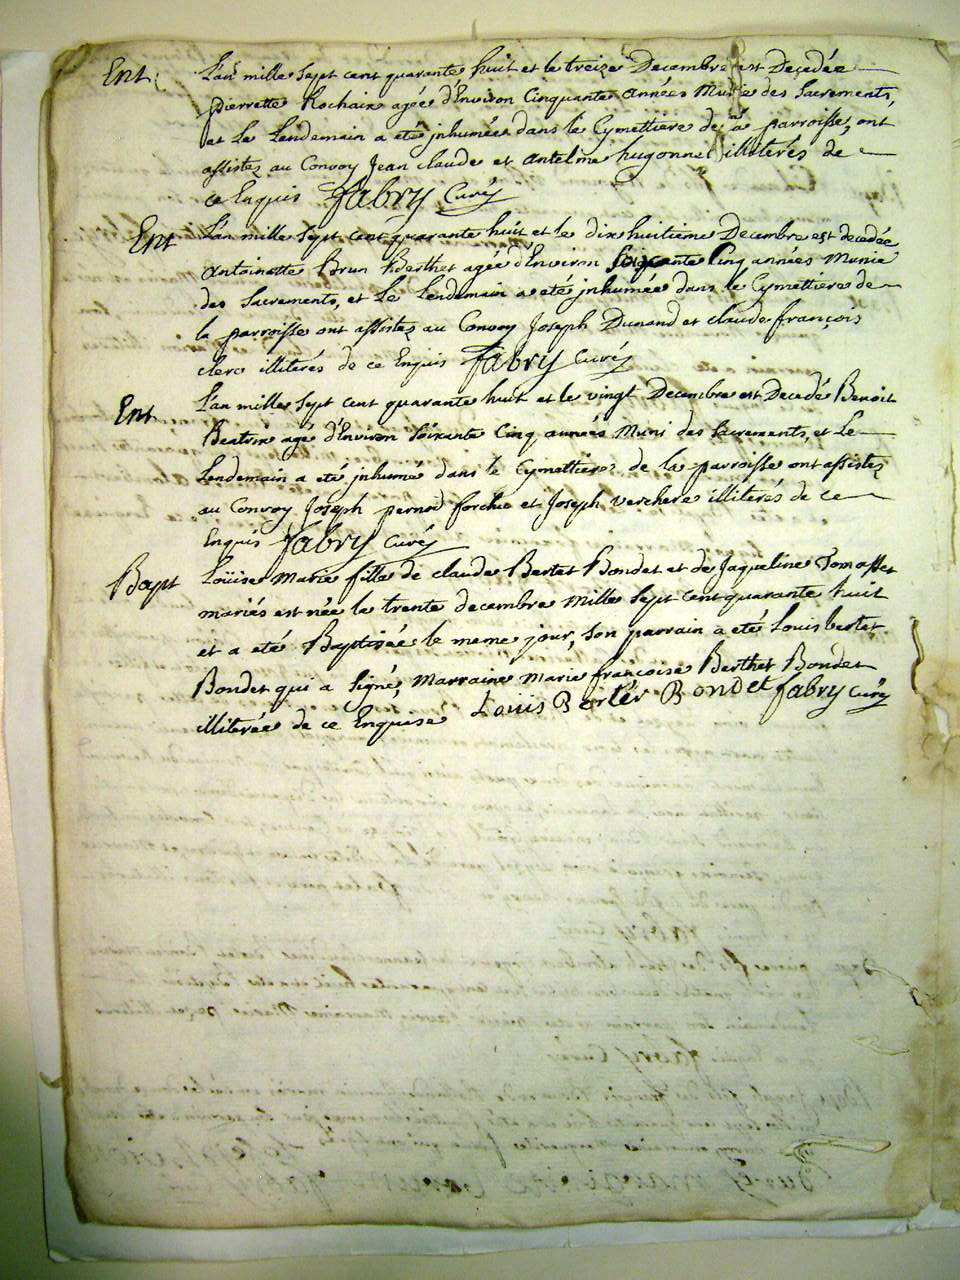 Ent. L'an mille sept cent quarante huit et le treize Decembre est Decedée
pierrette Rochaix agée d'Environ Cinquante années Munie des Sacrements,
et Le Lendemain a eté jnhumée dans le Cymettiere de la parroisse, ont
assistez au Convoy Jean claude et antelme hugonnet illiterés de
ce Enquis fabry Curéy
Ent L'an mille sept cent quarante huit et le dix huitieme Decembre est decedée
antoinette Brun Berthet agée d'Environ soixante Cinq années Munie
des Sacrements, et Le Lendemain a eté jnhumée dans le Cymettiere de
la parroisse ont assistez au Convoy Joseph Dunand et claude françois
clerc illiterés de ce Enquis fabry Curéy
Ent L'an mille sept cent quarante huit et le vingt Decembre est Decedé Benoit
Beatrix agé d'Environ soixante Cinq années Muni des Sacrements, et Le
Lendemain a eté jnhumé dans le Cymettiere de la parroisse ont assistez
au Convoy Joseph pernod forchie et Joseph verchere illiterés de ce
Enquis fabry Curéy
Bapt Loüise Marie fille de claude Bertet Bondet et de Jaqueline Tomasset
mariés est née le trente decembre Mille Sept cent quarante huit
et a eté Baptisée le meme jour, Son parrain a eté Louis bertet
Bondet qui a Signé, Marraine Marie françoise Berthet Bondet
illiterée de ce Enquise Loüis Bertér Bondet fabry Curéy